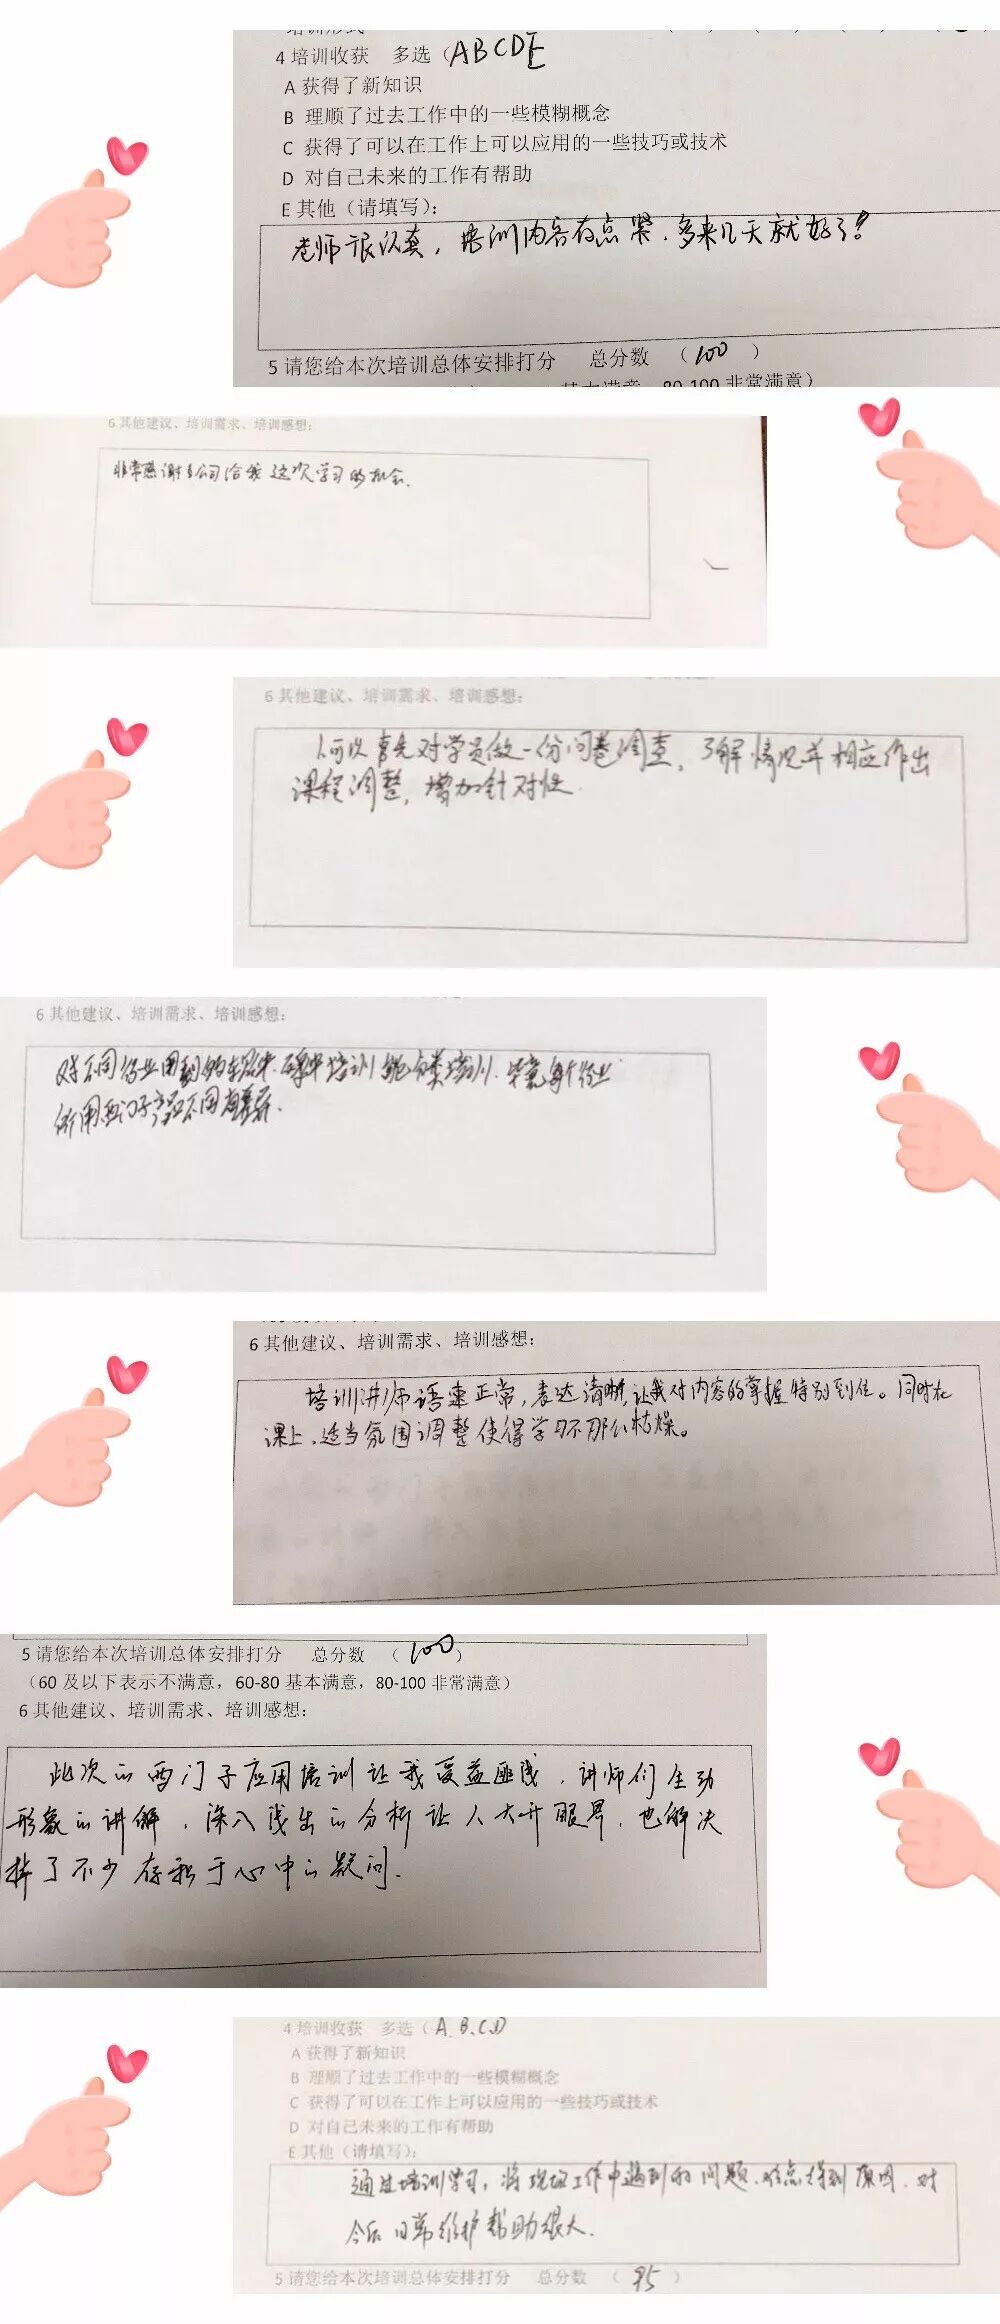 4 培训收获 多选（ABCDE
A 获得了新知识
B 理顺了过去工作中的一些模糊概念
C 获得了可以在工作上可以应用的一些技巧或技术
D 对自己未来的工作有帮助
E 其他（请填写）：
老师很认真，培训内容有点紧，多来几天就好了！
5 请您给本次培训总体安排打分 总分数 （100）
80-100 非常满意）
6 其他建议、培训需求、培训感想：
非常感谢公司给我这次学习的机会.
6 其他建议、培训需求、培训感想：
可以首先对学员做一份问卷调查，了解情况并相应作出
课程调整，增加针对性.
6 其他建议、培训需求、培训感想：
对不同行业用到的软件.硬件培训能分类培训.毕竟每个行业
所用西门子产品不同有差异.
6 其他建议、培训需求、培训感想：
培训讲师语速正常，表达清晰，让我对内容的掌握特别到位。同时在
课上，适当氛围调整使得学习不那么枯燥。
5 请您给本次培训总体安排打分 总分数 （100）
（60 及以下表示不满意，60-80 基本满意，80-100 非常满意）
6 其他建议、培训需求、培训感想：
此次的西门子应用培训让我受益匪浅，讲师们生动
形象的讲解，深入浅出的分析让人大开眼界，也解决
掉了不少存积于心中的疑问.
4 培训收获 多选（A.B.C.D
A 获得了新知识
B 理顺了过去工作中的一些模糊概念
C 获得了可以在工作上可以应用的一些技巧或技术
D 对自己未来的工作有帮助
E 其他（请填写）：
通过培训学习，将现场工作中遇到的问题、难点得到原因，对
今后日常维护帮助很大.
5 请您给本次培训总体安排打分 总分数 （95）